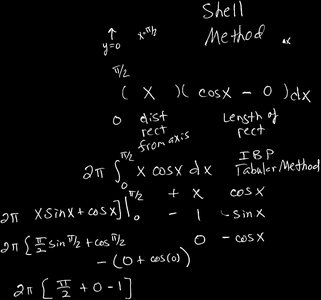 Shell
Method dx
↑ x=π/2
y=0
π/2
( x )( cosx - 0 )dx
0 dist rect from axis Length of rect
2π ∫₀^{π/2} x cosx dx IBP Tabular Method
2π xsinx + cosx]|₀^{π/2} + x cosx
- 1 sinx
2π [π/2 sin π/2 + cos π/2 0 -cosx
- (0 + cos(0))
2π [π/2 + 0 - 1]